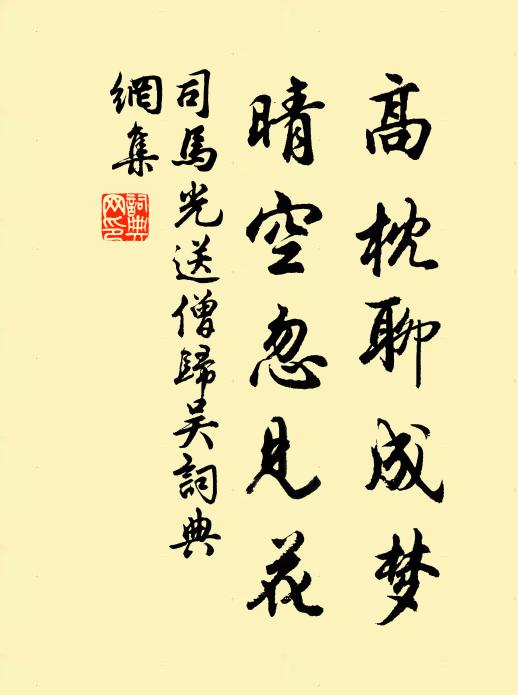 高枕聊成梦
晴空忽见花
司馬光送僧歸吴詞典
網集
詞典网印